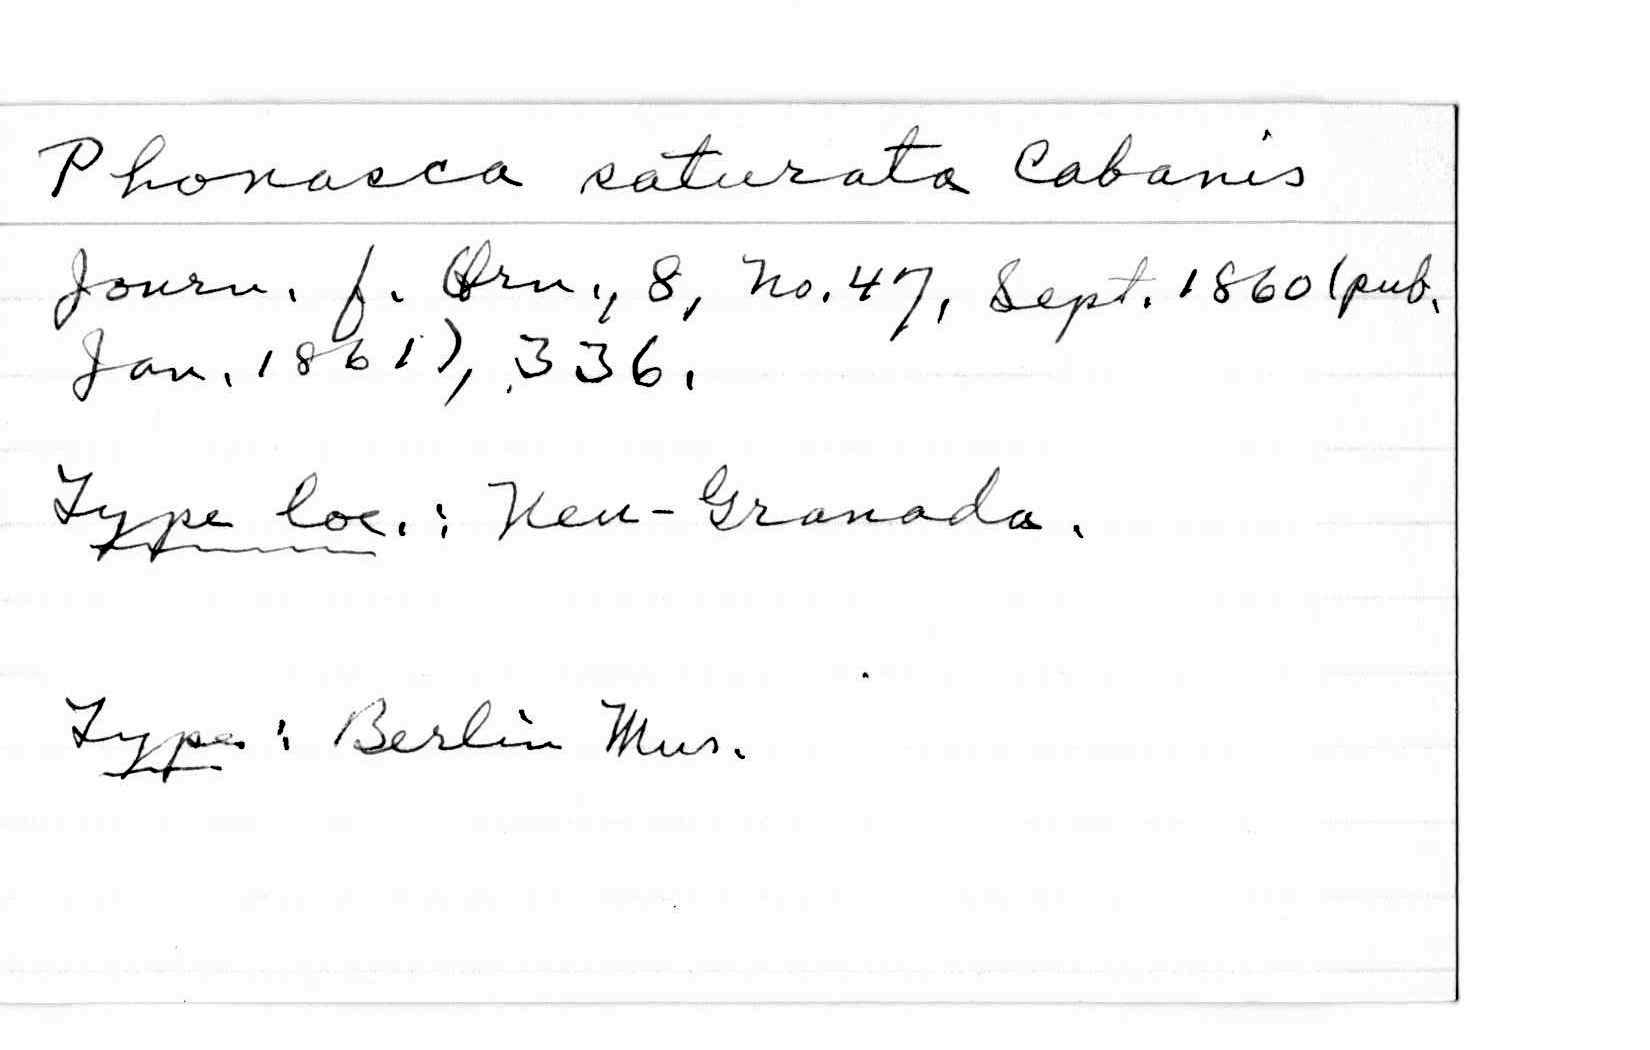 Phonasca saturata Cabanis
Journ. f. Orn., 8, No. 47, Sept. 1860 (pub.
Jan. 1861), 336.
Type loc.: Neu-Granada.
Type: Berlin Mus.